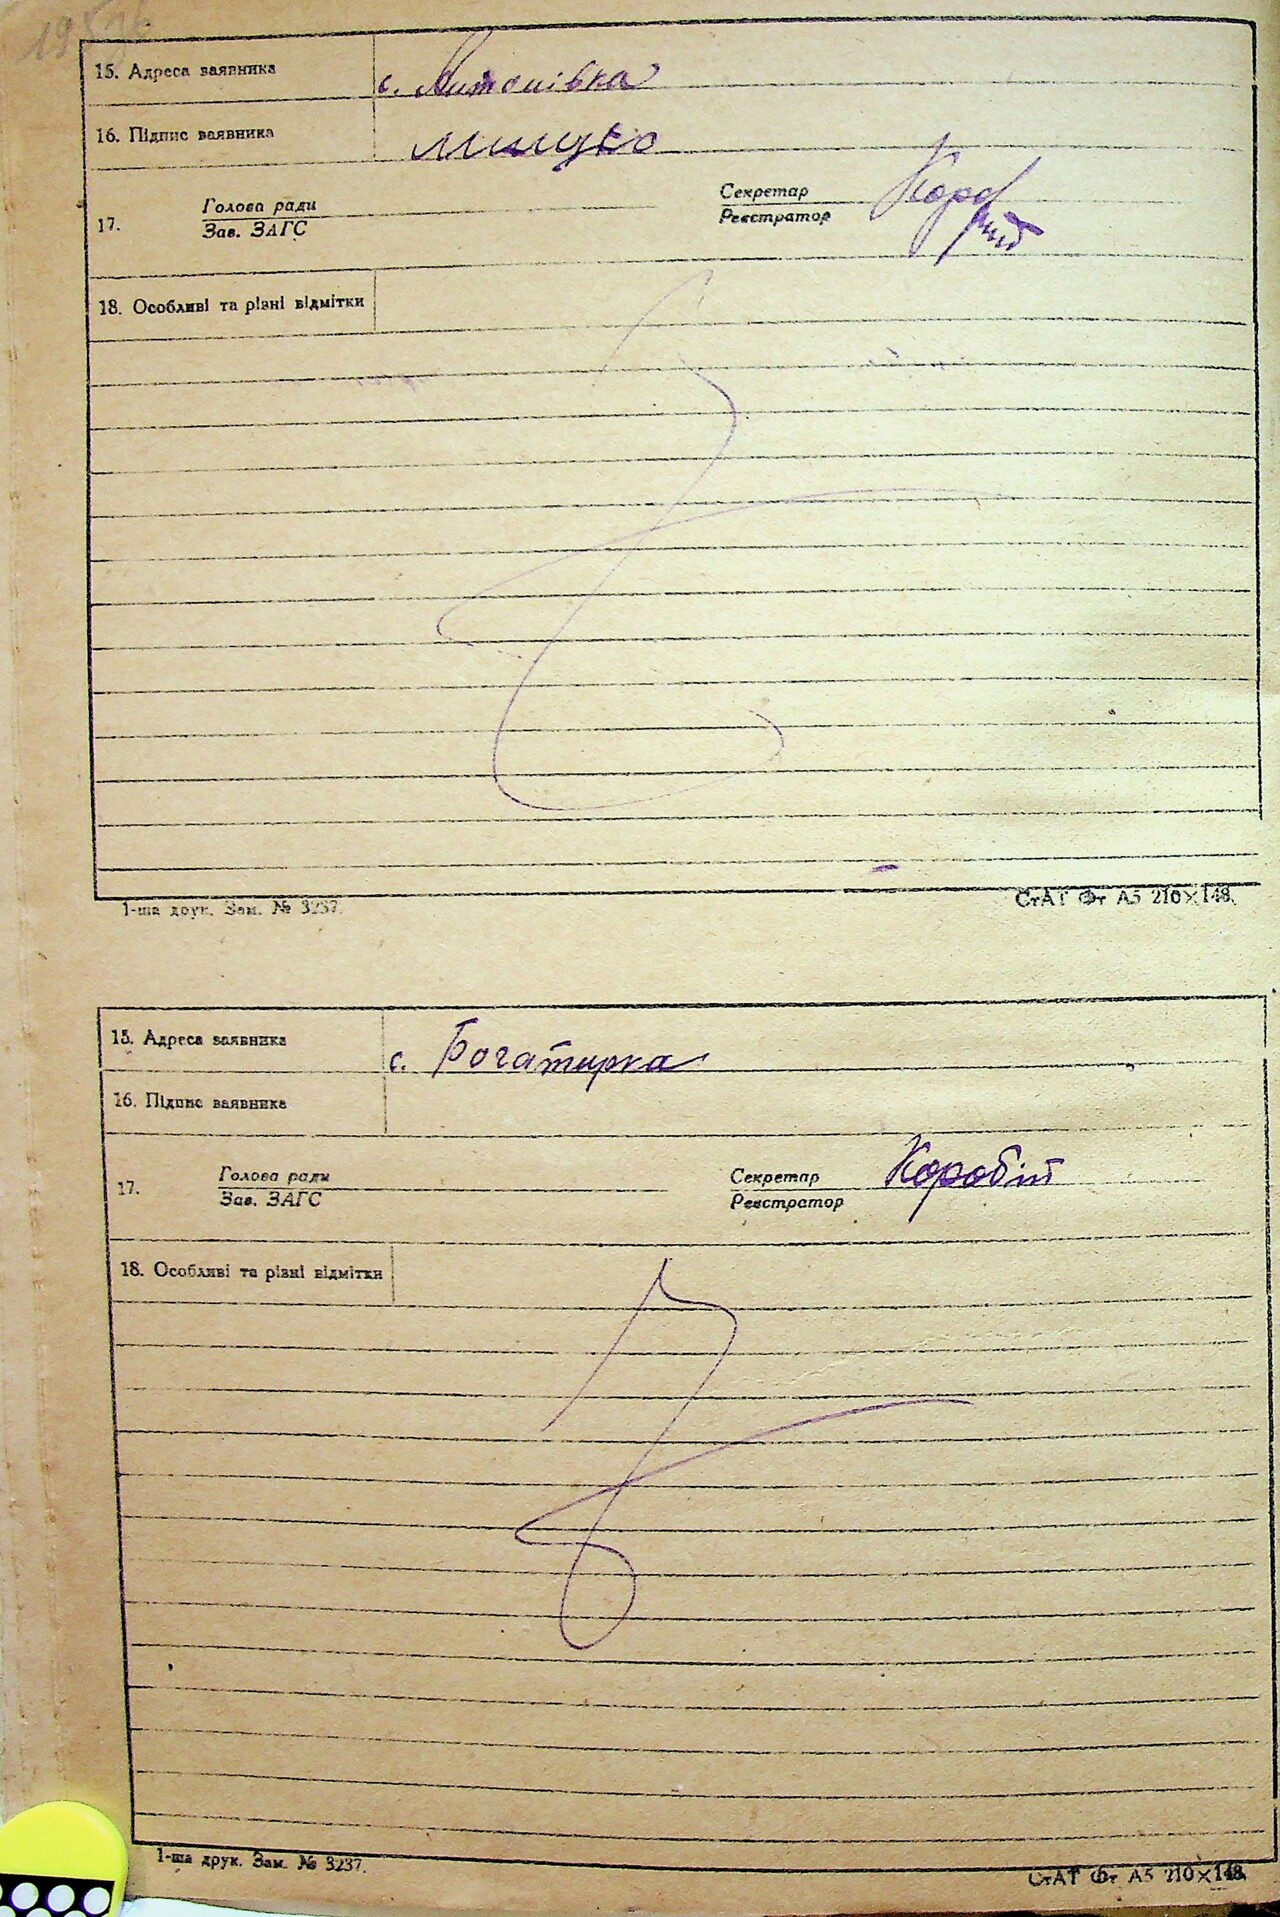 15. Адреса заявника с. Антонівка
16. Підпис заявника Мицко
17. Голова ради Секретар
Зав. ЗАГС Реєстратор
18. Особливі та різні відмітки
1-ша друк. Зам. № 3237. СтАТ Фт А5 210×148.
15. Адреса заявника с. Богатирка
16. Підпис заявника
17. Голова ради Секретар Коробій
Зав. ЗАГС Реєстратор
18. Особливі та різні відмітки
1-ша друк. Зам. № 3237. СтАТ Фт А5 210×148.